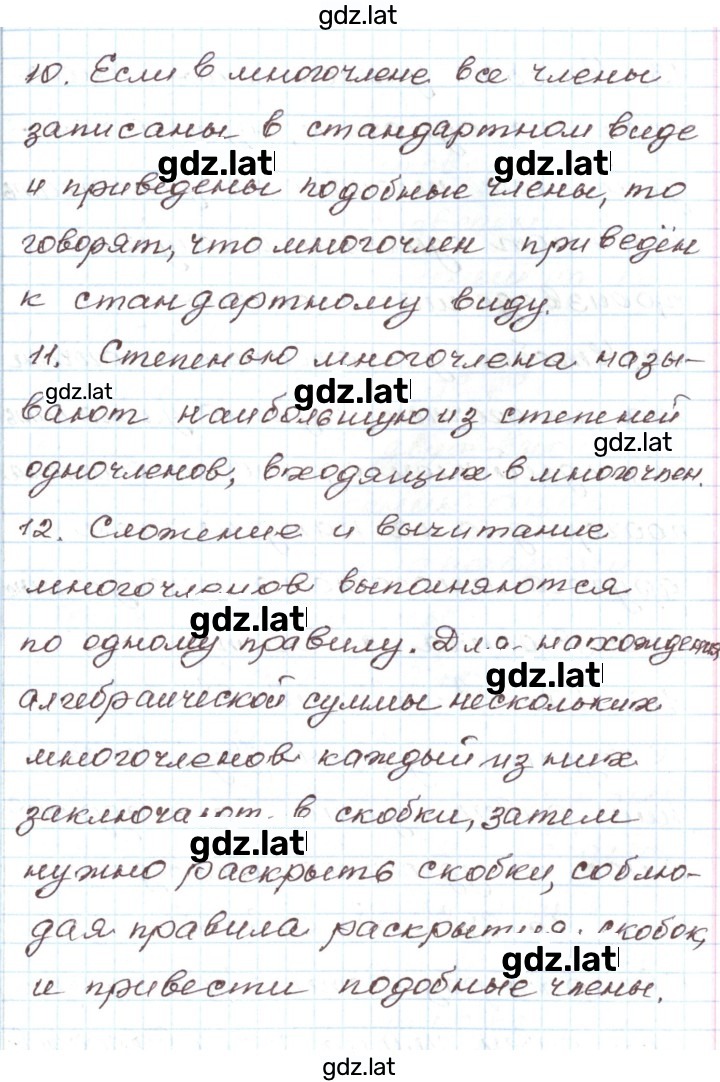 gdz.lat
10. Если в многочлене все члены
записаны в стандартном виде
gdz.lat gdz.lat
и приведены подобные члены, то
говорят, что многочлен приведён
к стандартному виду.
11. Степенью многочлена назы-
gdz.lat gdz.lat
вают наибольшую из степеней
gdz.lat
одночленов, входящих в многочлен.
12. Сложение и вычитание
многочленов выполняются
gdz.lat
по одному правилу. Для нахождения
gdz.lat
алгебраической суммы нескольких
многочленов каждый из них
заключают в скобки, затем
gdz.lat
нужно раскрыть скобки, соблю-
дая правила раскрытия скобок,
gdz.lat
и привести подобные члены.
gdz.lat